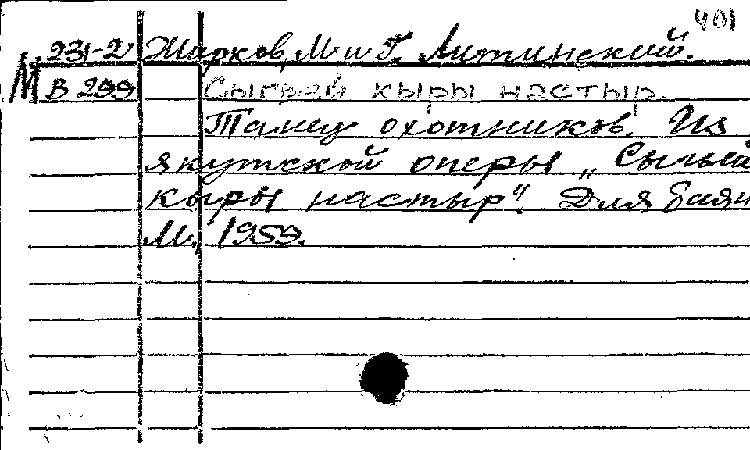 401
231-2 Жирков, М. и Г. Литинский.
М В 299 Сыгый кыры настыр.
Танец охотников. Из
якутской оперы „Сыгый
кыры настыр". Для баян
М., 1959.